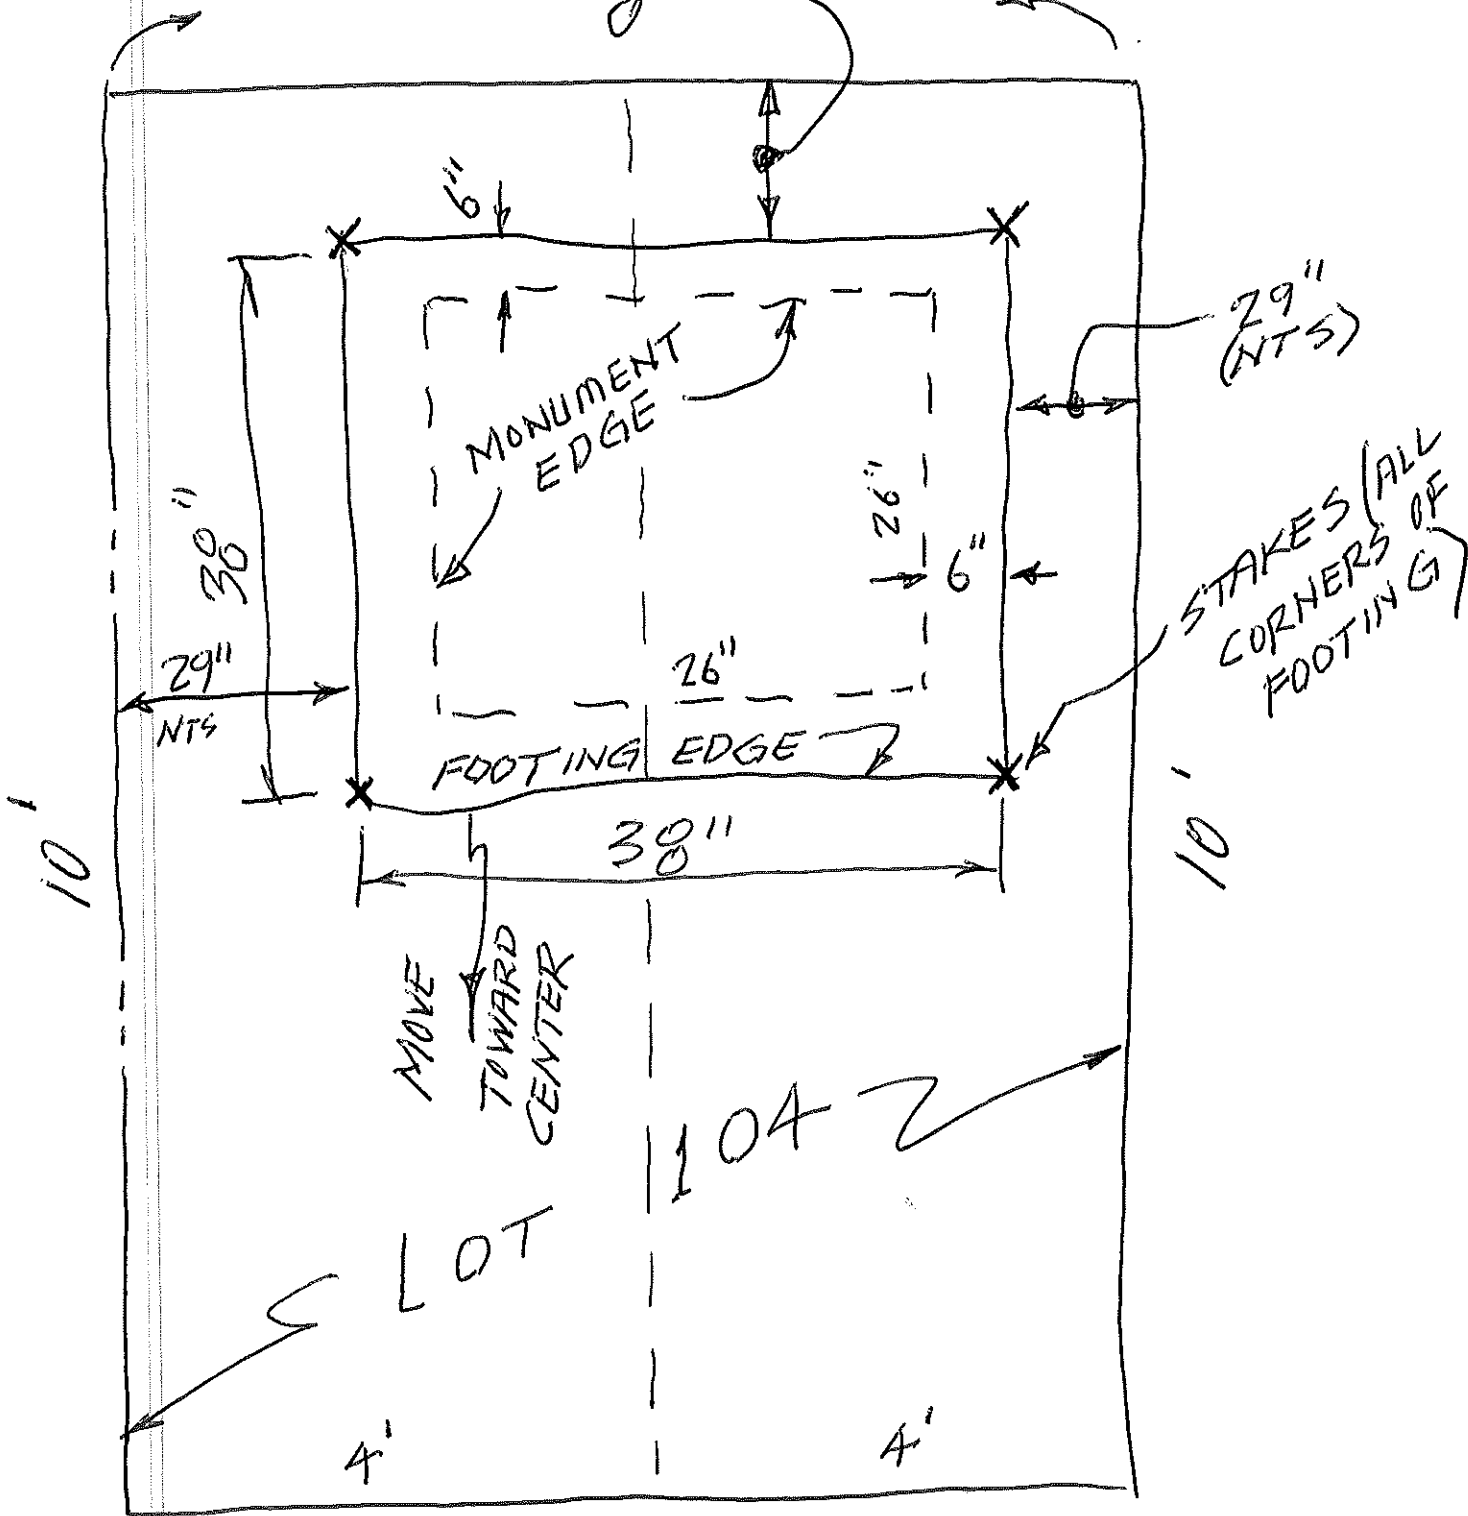 6"
29"
(NTS)
MONUMENT
EDGE
26"
6"
STAKES (ALL
CORNERS OF
FOOTING)
38"
29"
NTS
26"
FOOTING EDGE
38"
10'
10'
MOVE
TOWARD
CENTER
LOT 104
4'
4'